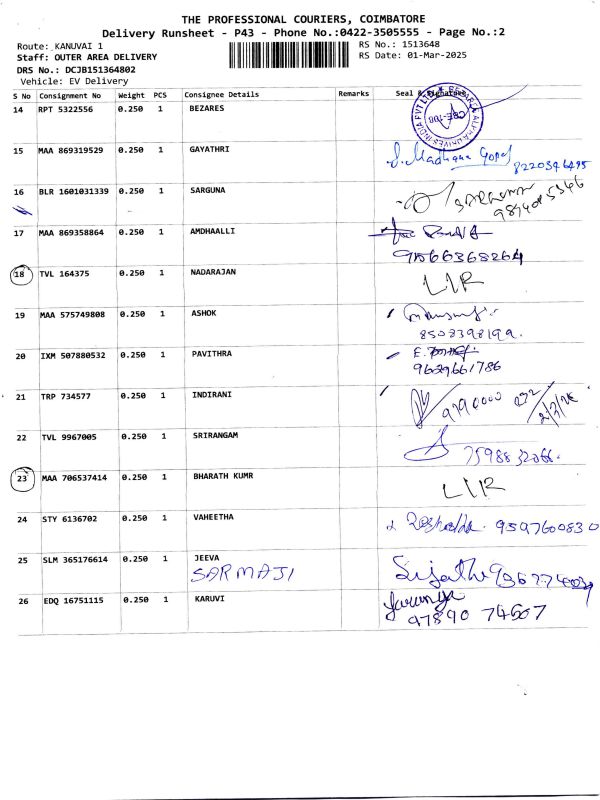 THE PROFESSIONAL COURIERS, COIMBATORE
Delivery Runsheet - P43 - Phone No.:0422-3505555 - Page No.:2
Route: KANUVAI 1 RS No.: 1513648
Staff: OUTER AREA DELIVERY RS Date: 01-Mar-2025
DRS No.: DCJB151364802
Vehicle: EV Delivery
S No Consignment No Weight PCS Consignee Details Remarks Seal & Signature
14 RPT 5322556 0.250 1 BEZARES
15 MAA 869319529 0.250 1 GAYATHRI
S. Madhana Gopal
8220346495
16 BLR 1601031339 0.250 1 SARGUNA
17 MAA 869358864 0.250 1 AMDHAALLI
9566368264
18 TVL 164375 0.250 1 NADARAJAN
L/R
19 MAA 575749808 0.250 1 ASHOK
8508398199.
20 IXM 507880532 0.250 1 PAVITHRA
9629661786
21 TRP 734577 0.250 1 INDIRANI
22 TVL 9967005 0.250 1 SRIRANGAM
7598832066.
23 MAA 706537414 0.250 1 BHARATH KUMR
L/R
24 STY 6136702 0.250 1 VAHEETHA
9597600830
25 SLM 365176614 0.250 1 JEEVA
SARMAJI
26 EDQ 16751115 0.250 1 KARUVI
97890 74507